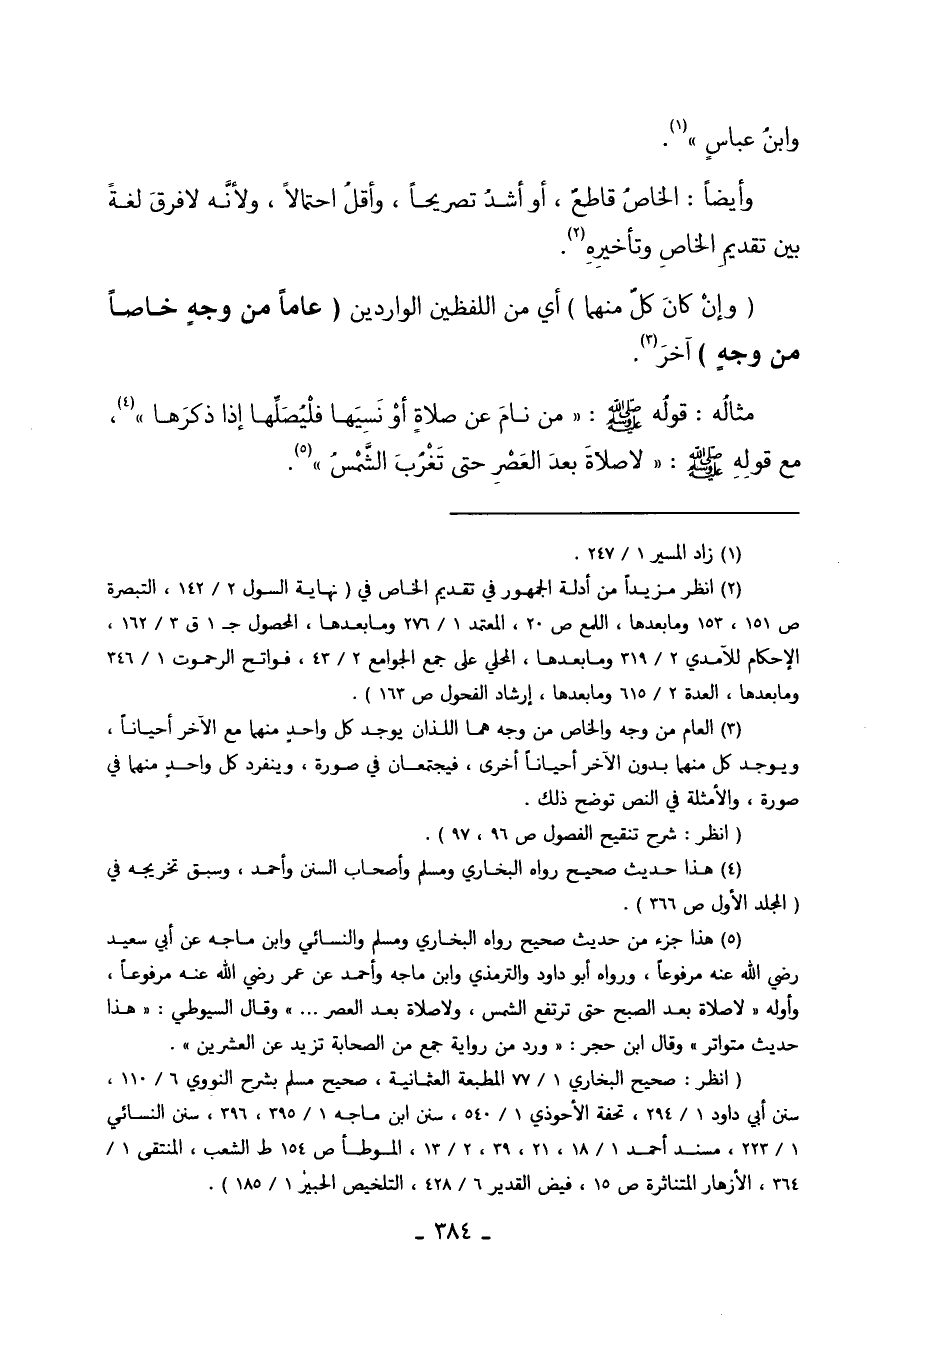 وابنُ عباسٍ »(١).
وأيضاً : الخاصُ قاطعٌ ، أو أشدُ تصريحاً ، وأقلُ احتمالاً ، ولأنَّه لافرقَ لغةً
بين تقديمِ الخاصِ وتأخيرِهِ(٢).
( وإنْ كانَ كلّ منهما ) أي من اللفظين الواردين ( عاماً من وجهٍ خاصاً
من وجهٍ ) آخرَ(٣).
مثالُه : قولُه ﷺ : « من نامَ عن صلاةٍ أوْ نَسِيَها فلْيُصَلِّها إذا ذكرَها »(٤)،
مع قولِهِ ﷺ : « لاصلاةَ بعدَ العَصْرِ حتى تَغْرُبَ الشَّمْسُ »(٥).
(١) زاد المسير ١ / ٢٤٧ .
(٢) انظر مزيداً من أدلة الجمهور في تقديم الخاص في ( نهاية السول ٢ / ١٤٢ ، التبصرة
ص ١٥١ ، ١٥٣ ومابعدها ، اللمع ص ٢٠ ، المعتمد ١ / ٢٧٦ ومابعدها ، المحصول جـ ١ ق ٣ / ١٦٢ ،
الإحكام للآمدي ٢ / ٣١٩ ومابعدها ، المحلي على جمع الجوامع ٢ / ٤٣ ، فواتح الرحموت ١ / ٣٤٦
ومابعدها ، العدة ٢ / ٦١٥ ومابعدها ، إرشاد الفحول ص ١٦٣ ) .
(٣) العام من وجه والخاص من وجه هما اللذان يوجد كل واحدٍ منهما مع الآخر أحياناً ،
ويوجد كل منهما بدون الآخر أحياناً أخرى ، فيجتمعان في صورة ، وينفرد كل واحدٍ منهما في
صورة ، والأمثلة في النص توضح ذلك .
( انظر : شرح تنقيح الفصول ص ٩٦ ، ٩٧ ) .
(٤) هذا حديث صحيح رواه البخاري ومسلم وأصحاب السنن وأحمد ، وسبق تخريجه في
( المجلد الأول ص ٣٦٦ ) .
(٥) هذا جزء من حديث صحيح رواه البخاري ومسلم والنسائي وابن ماجه عن أبي سعيد
رضي الله عنه مرفوعاً ، ورواه أبو داود والترمذي وابن ماجه وأحمد عن عمر رضي الله عنه مرفوعاً ،
وأوله « لاصلاة بعد الصبح حتى ترتفع الشمس ، ولاصلاة بعد العصر ... » وقال السيوطي : « هذا
حديث متواتر » وقال ابن حجر : « ورد من رواية جمع من الصحابة تزيد عن العشرين » .
( انظر : صحيح البخاري ١ / ٧٧ المطبعة العثمانية ، صحيح مسلم بشرح النووي ٦ / ١١٠ ،
سنن أبي داود ١ / ٢٩٤ ، تحفة الأحوذي ١ / ٥٤٠ ، سنن ابن ماجه ١ / ٣٩٥ ، ٣٩٦ ، سنن النسائي
١ / ٢٢٣ ، مسند أحمد ١ / ١٨ ، ٢١ ، ٣٩ ، ٢ / ١٣ ، الموطأ ص ١٥٤ ط الشعب ، المنتقى ١ /
٣٦٤ ، الأزهار المتناثرة ص ١٥ ، فيض القدير ٦ / ٤٢٨ ، التلخيص الحبير ١ / ١٨٥ ) .
- ٣٨٤ -